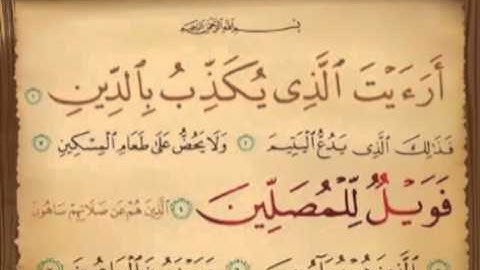 بِسْمِ ٱللَّهِ ٱلرَّحْمَٰنِ ٱلرَّحِيمِ
أَرَءَيْتَ ٱلَّذِى يُكَذِّبُ بِٱلدِّينِ ١
فَذَٰلِكَ ٱلَّذِى يَدُعُّ ٱلْيَتِيمَ ٢ وَلَا يَحُضُّ عَلَىٰ طَعَامِ ٱلْمِسْكِينِ ٣
فَوَيْلٌ لِّلْمُصَلِّينَ ٤ ٱلَّذِينَ هُمْ عَن صَلَاتِهِمْ سَاهُونَ